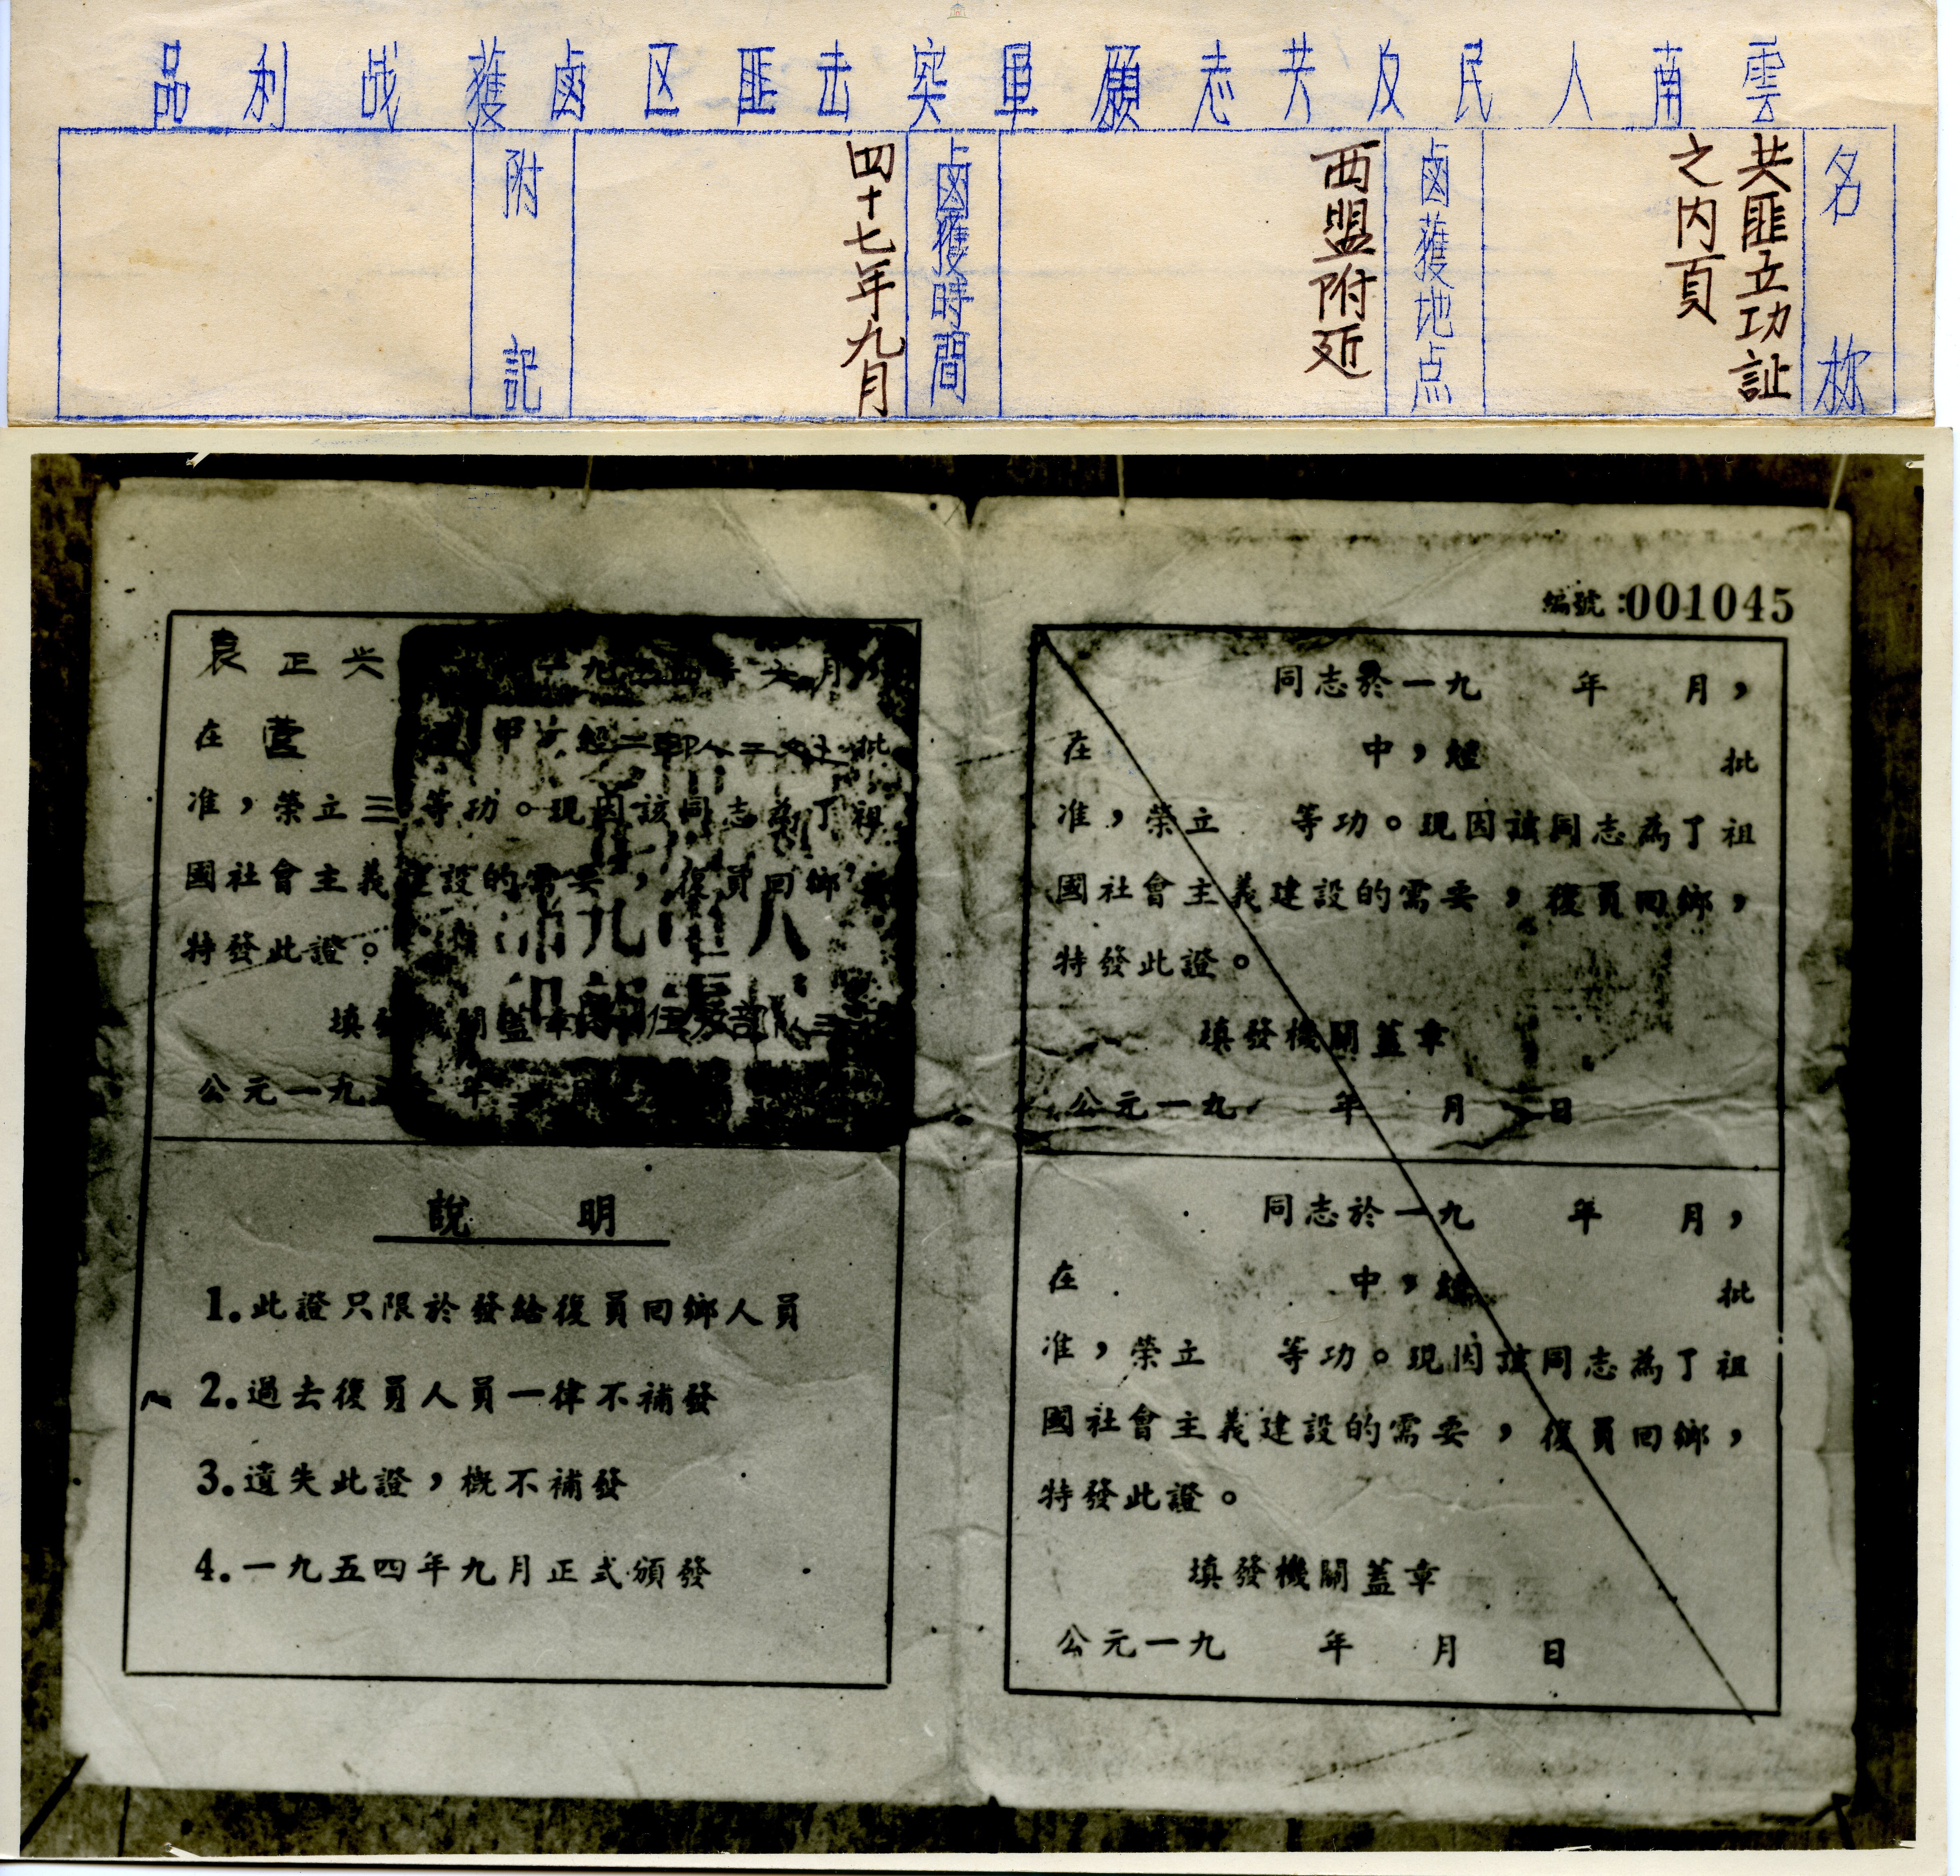 雲南人民反共志願軍突击匪区鹵獲战利品
名称
共匪立功証
之内頁
鹵獲地点
西盟附近
鹵獲時間
四十七年九月
附記
編號:001045
同志於一九 年 月，
在 中，經 批
准，榮立 等功。現因該同志為了祖
國社會主義建設的需要，復員回鄉，
特發此證。
填發機關蓋章
公元一九 年 月 日
同志於一九 年 月，
在 中，經 批
准，榮立 等功。現因該同志為了祖
國社會主義建設的需要，復員回鄉，
特發此證。
填發機關蓋章
公元一九 年 月 日
袁正兴 一九五四年六月
在 批
准，榮立三等功。現因該同志為了祖
國社會主義建設的需要，復員回鄉，
特發此證。
填發機關蓋章
公元一九五 年 月
說明
1.此證只限於發給復員回鄉人員
2.過去復員人員一律不補發
3.遺失此證，概不補發
4.一九五四年九月正式頒發